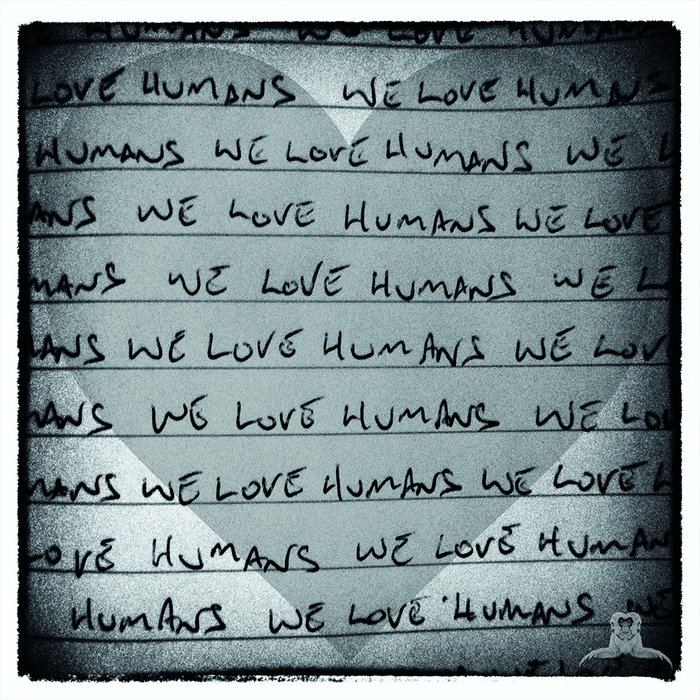 HUMANS WE LOVE HUMANS
LOVE HUMANS WE LOVE HUMANS
HUMANS WE LOVE HUMANS WE
WE LOVE HUMANS WE LOVE
WE LOVE HUMANS WE
WE LOVE HUMANS WE
WE LOVE HUMANS WE
WE LOVE HUMANS WE LOVE
LOVE HUMANS WE LOVE HUMANS
HUMANS WE LOVE HUMANS WE